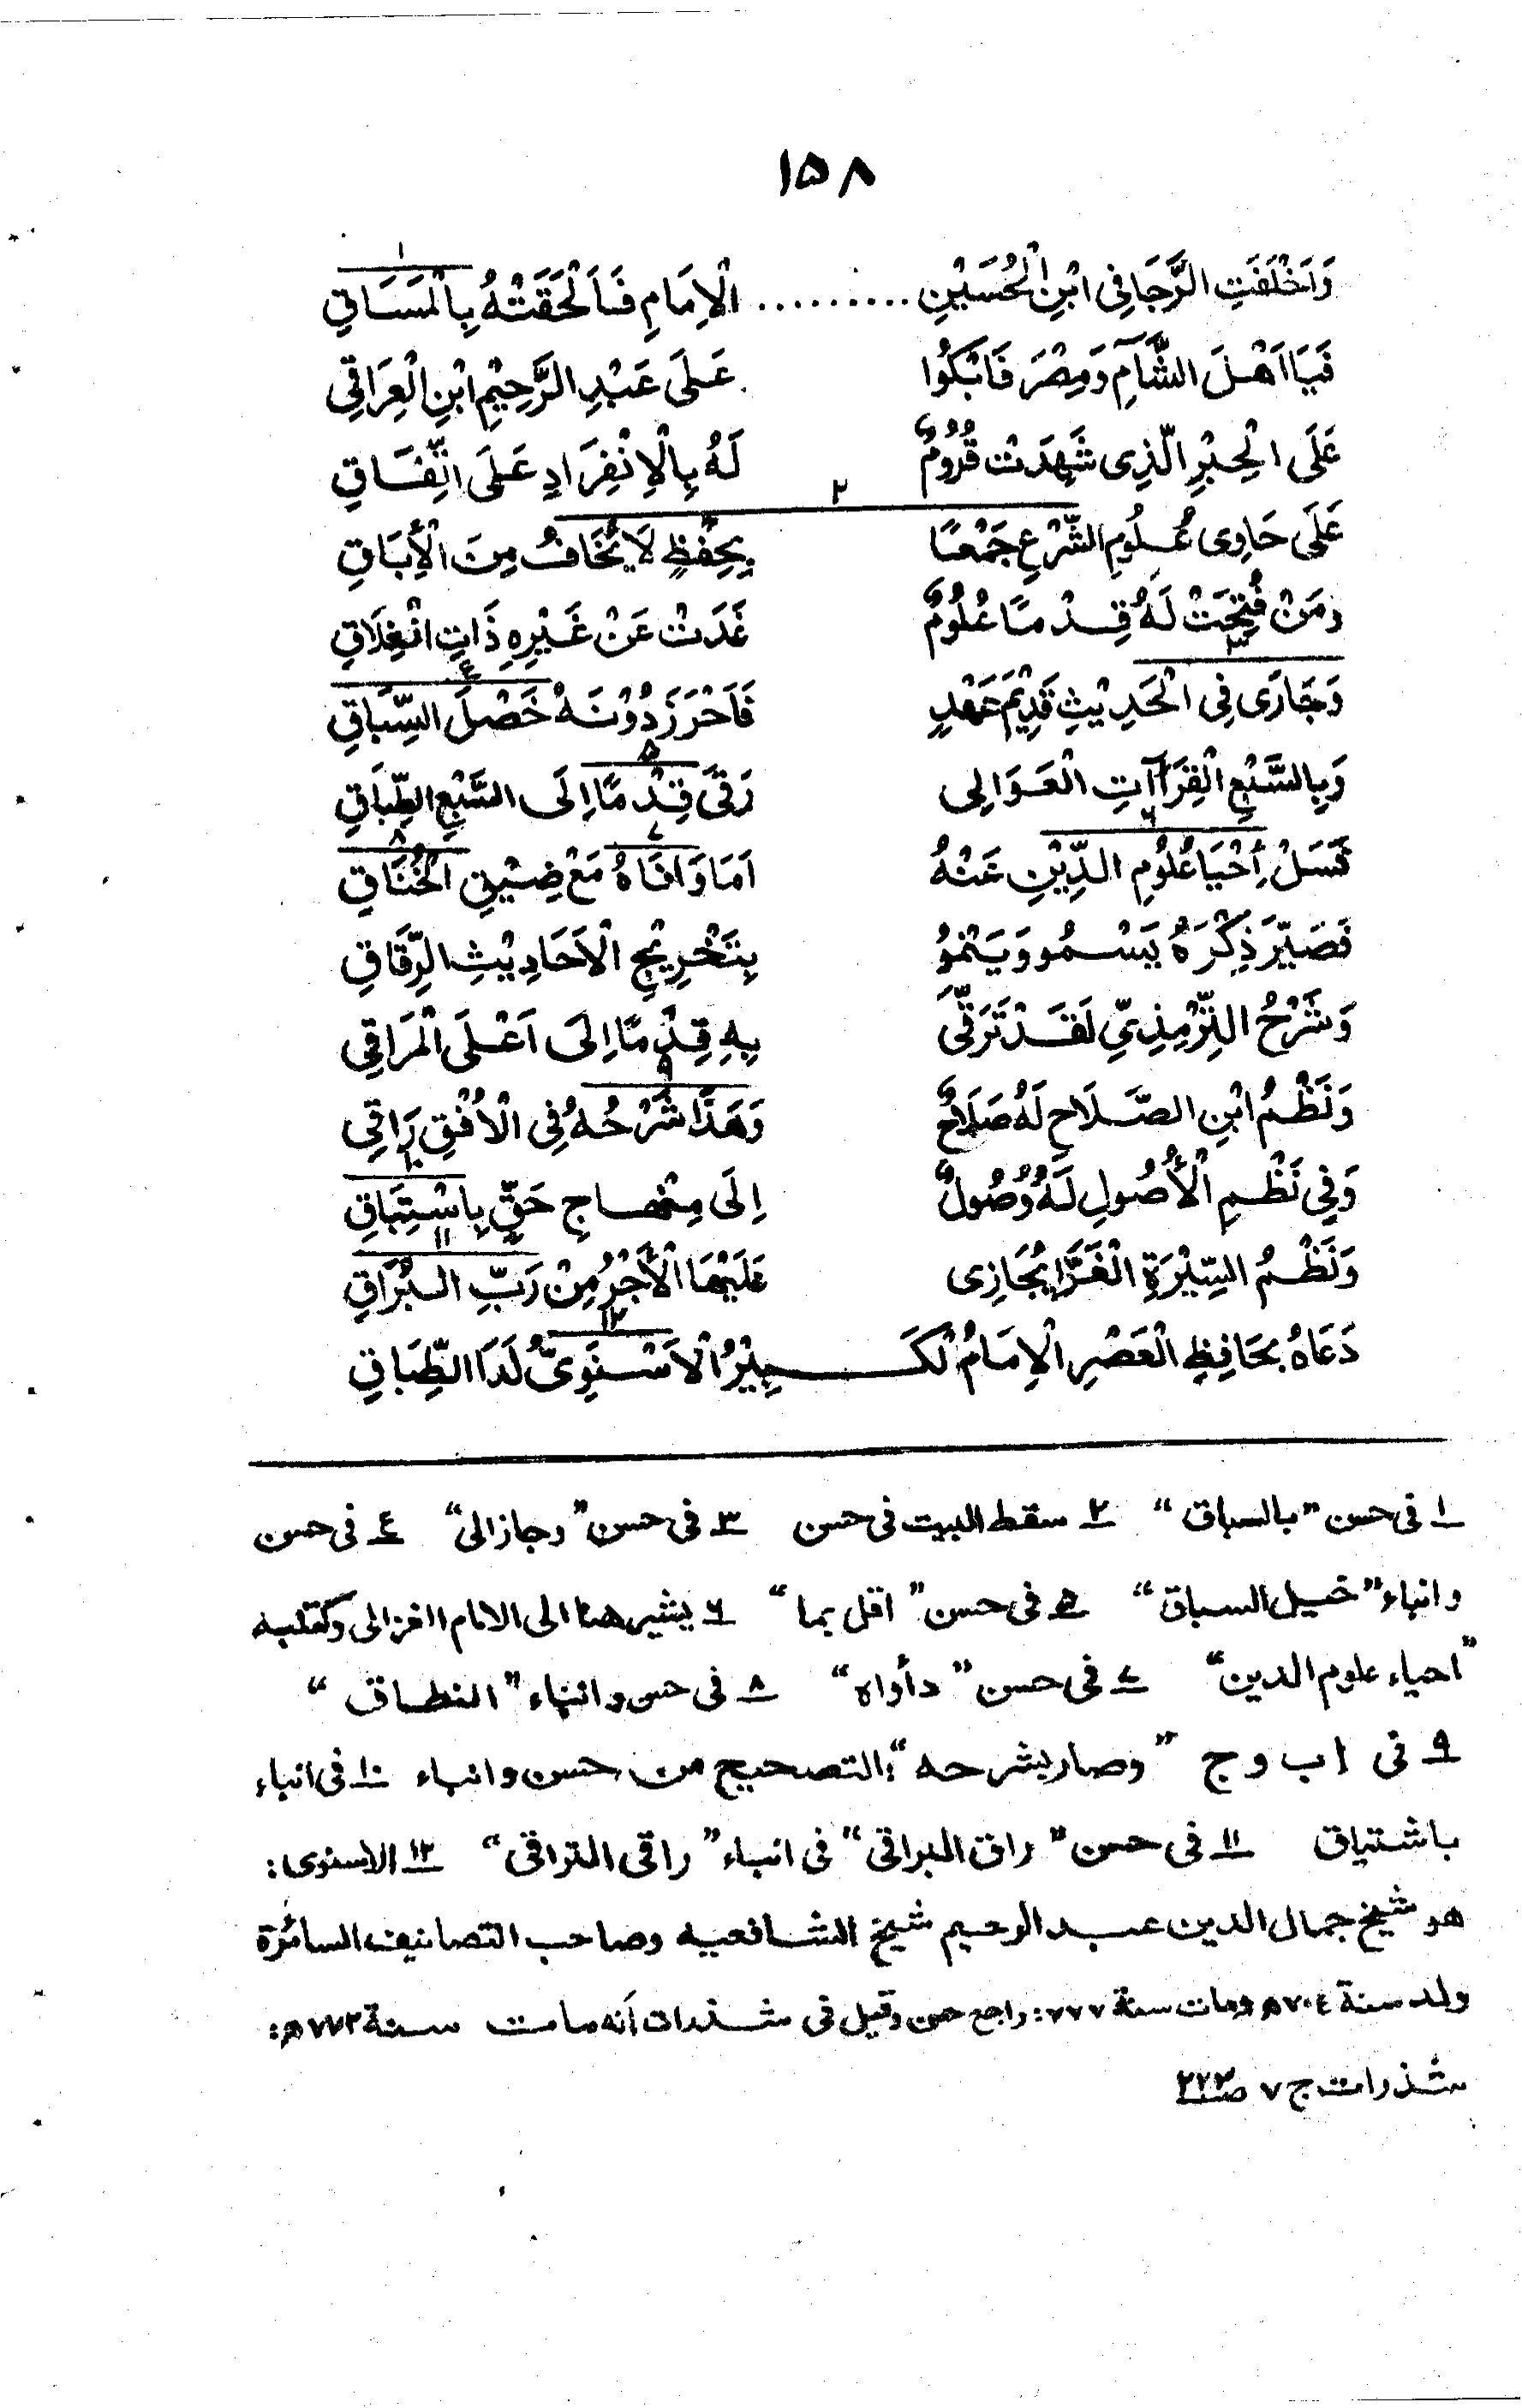 ١٥٨
وَاَخْلَفَتِ الرَّجَا فِى ابْنِ الْحُسَيْنِ ......... الْاِمَامِ فَاَلْحَقَتْهُ بِالْمَسَاقِ ١
فَيَا اَهْلَ الشَّآمِ وَمِصْرَ فَابْكُوْا عَلَى عَبْدِ الرَّحِيْمِ ابْنِ الْعِرَاقِى
عَلَى الْحِبْرِ الَّذِى شَهِدَتْ قُرُوْمٌ لَهُ بِالْاِنْفِرَادِ عَلَى اتِّفَاقِ
عَلَى حَاوِى عُلُومِ الشَّرْعِ جَمْعًا ٢ بِحِفْظٍ لَا يَخَافُ مِنَ الْأِبَاقِ
وَمَنْ فُتِحَتْ لَهُ قِدْمًا عُلُوْمٌ غَدَتْ عَنْ غَيْرِهِ ذَاتِ انْغِلَاقِ
وَجَارَى فِى الْحَدِيْثِ قَدِيْمَ عَهْدٍ ٣ فَاَحْرَزَ دُوْنَهُ خَصْلَ السِّبَاقِ ٤
وَبِالسَّبْعِ الْقِرَاآتِ الْعَوَالِى رَقَى قِدْمًا اِلَى السَّبْعِ الطِّبَاقِ ٥
فَسَلْ أِحْيَا عُلُوْمِ الدِّيْنِ عَنْهُ ٦ اَمَا وَافَاهُ مَعْ ضِيْقِ الْخُنَاقِ ٧ ٨
فَصَيَّرَ ذِكْرَهُ يَسْمُو وَيَنْمُوْ بِتَخْرِيْجِ الْاَحَادِيْثِ الرِّقَاقِ
وَشَرْحُ التِّرْمِذِىِّ لَقَدْ تَرَقَّى بِهِ قِدْمًا اِلَى اَعْلَى الْمَرَاقِى
وَنَظْمُ ابْنِ الصَّلَاحِ لَهُ صَلَاحٌ وَهَذَا شَرْحُهُ فِى الْاُفْقِ رَاقِى ٩
وَفِى نَظْمِ الْأُصُولِ لَهُ وُصُولٌ اِلَى مِنْهاجِ حَقٍّ بِاسْتِبَاقِ ١٠
وَنَظْمُ السِّيْرَةِ الْغَرَّا يُجَازِى عَلَيْهَا الْأَجْرُ مِنْ رَبِّ الْبُرَاقِ ١١
دَعَاهُ بِحَافِظِ الْعَصْرِ الْاِمَامُ الْكَبِيْرُ الْاَسْنَوِىُّ لَدَا الطِّبَاقِ ١٢
١ فى حسن "بالسباق" ٢ سقط البيت فى حسن ٣ فى حسن "وجازالى" ٤ فى حسن
وانباء "خيل السباق" ٥ فى حسن "اقل بما" ٦ يشير هنا الى الامام الغزالى وكتابه
"احياء علوم الدين" ٧ فى حسن "دأواه" ٨ فى حسن وانباء "النطاق"
٩ فى ا ب و ج "وصار بشرحه" التصحيح من حسن وانباء ١٠ فى انباء
باشتياق ١١ فى حسن "راق البراقى" فى انباء "راقى التراقى" ١٢ الاسنوى:
هو شيخ جمال الدين عبد الرحيم شيخ الشافعيه وصاحب التصانيف السائرة
ولد سنة ٧٠٤ﻫ ومات سنة ٧٧٧: راجع حسن وقيل فى شذرات أنه مات سنة ٧٧٢ﻫ:
شذرات ج ٧ ص ٢٢٣